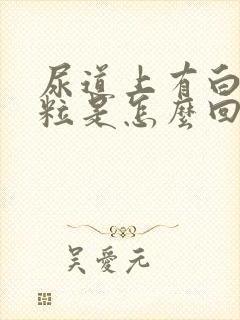 尿道上有白
粒是怎麼回
吴愛元